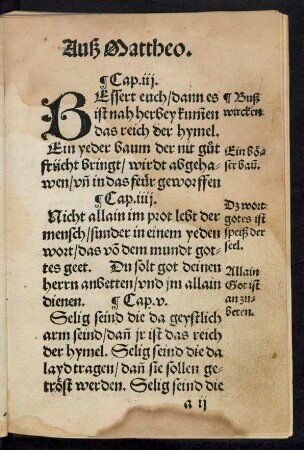 Auß Mattheo.
¶ Cap.iij.
BEssert euch/dann es
ist nah herbey kum̃en
das reich der hymel.
Ein yeder baum der nit gůt
frücht bringt/ wirdt abgeha-
wen/vn̄ in das feür geworffen
¶ Cap.iiij.
Nicht allain im prot lebt der
mensch/sunder in einem yeden
wort/das võ dem mundt got-
tes geet. Du solt got deinen
herrn anbetten/vnd jm allain
dienen. ¶ Cap.v.
Selig seind die da geystlich
arm seind/dañ jr ist das reich
der hymel. Selig seind die da
laydtragen/dañ sie sollen ge-
tröst werden. Selig seind die
a ij
¶ Buß
wircken
Ein bö-
ser baũ.
Dz wort
gotes ist
speiß der
seel.
Allain
Got ist
an zu-
beten.